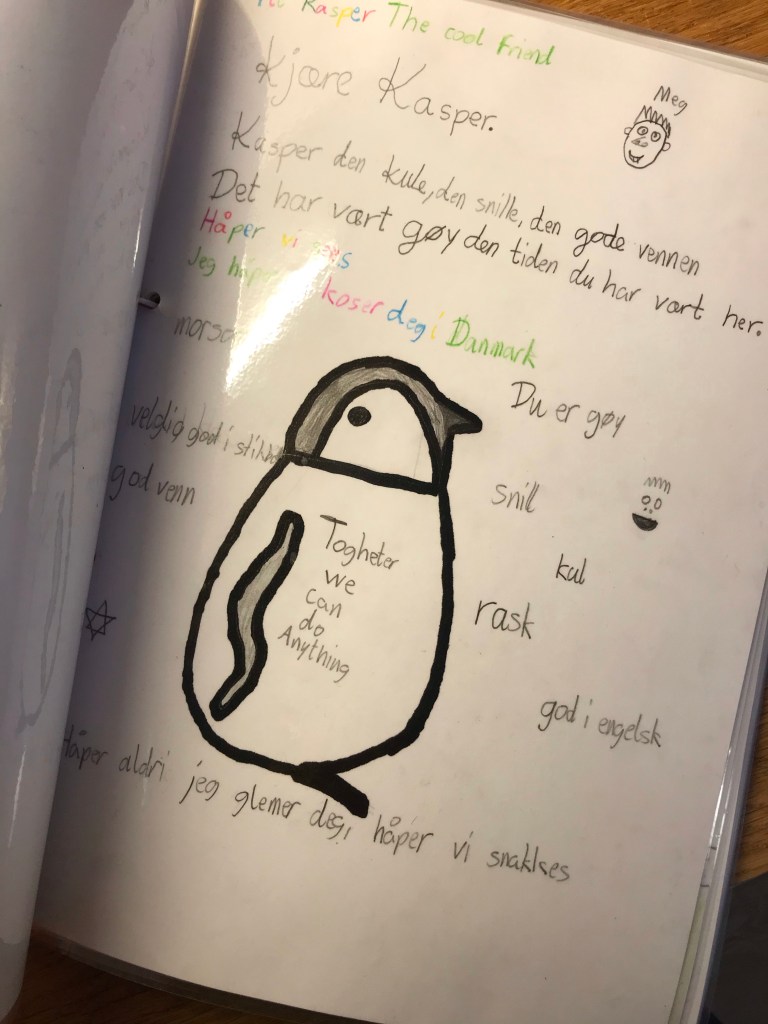 Kasper The cool Friend
Kjære Kasper.
Meg
Kasper den kule, den snille, den gode vennen
Det har vært gøy den tiden du har vært her.
Håper vi sees
Jeg håper koser deg i Danmark
Du er gøy
veldig god i
god venn
snill
kul
rask
god i engelsk
Togheter
we
can
do
Anything
Håper aldri jeg glemer deg, håper vi snakkes